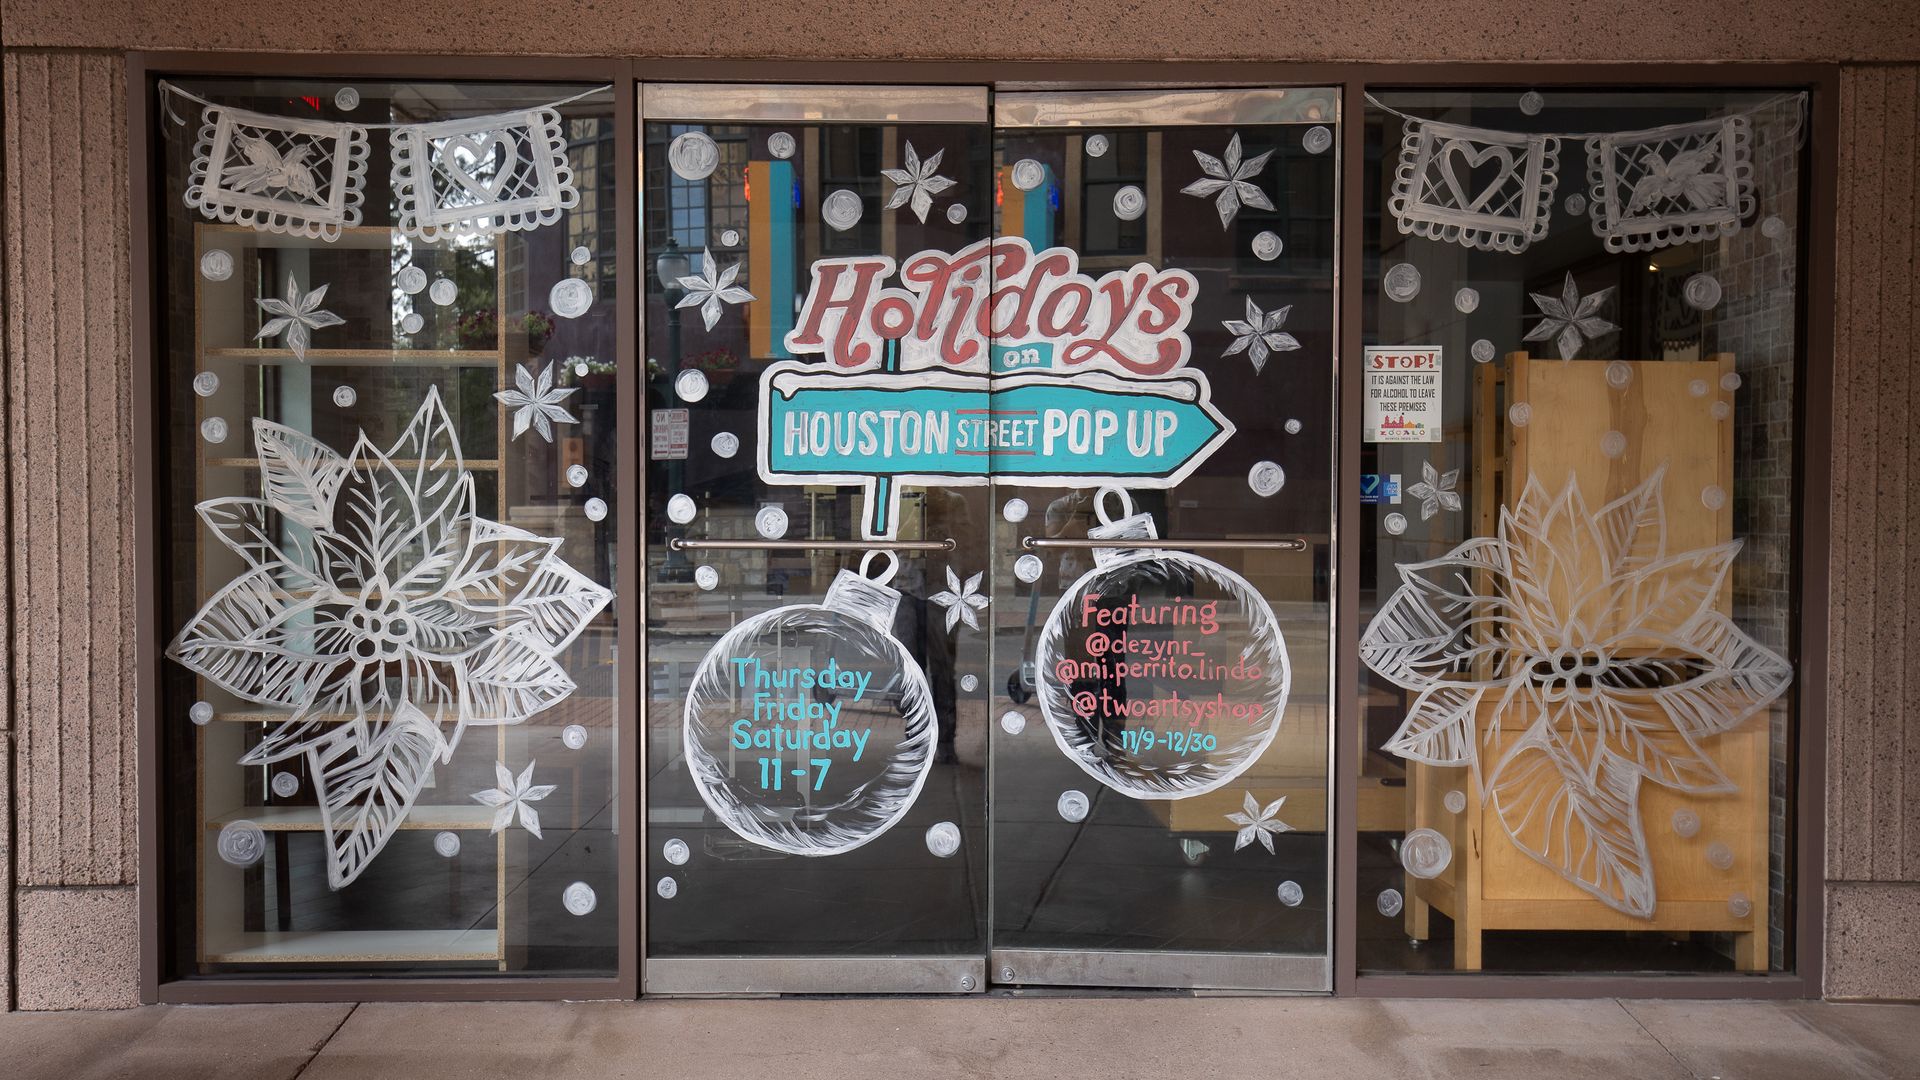 Holidays
on
HOUSTON STREET POP UP
Thursday
Friday
Saturday
11-7
Featuring
@dezynr_
@mi.perrito.lindo
@twoartsyshop
11/9-12/30
STOP!
IT IS AGAINST THE LAW
FOR ALCOHOL TO LEAVE
THESE PREMISES
ZOCALO